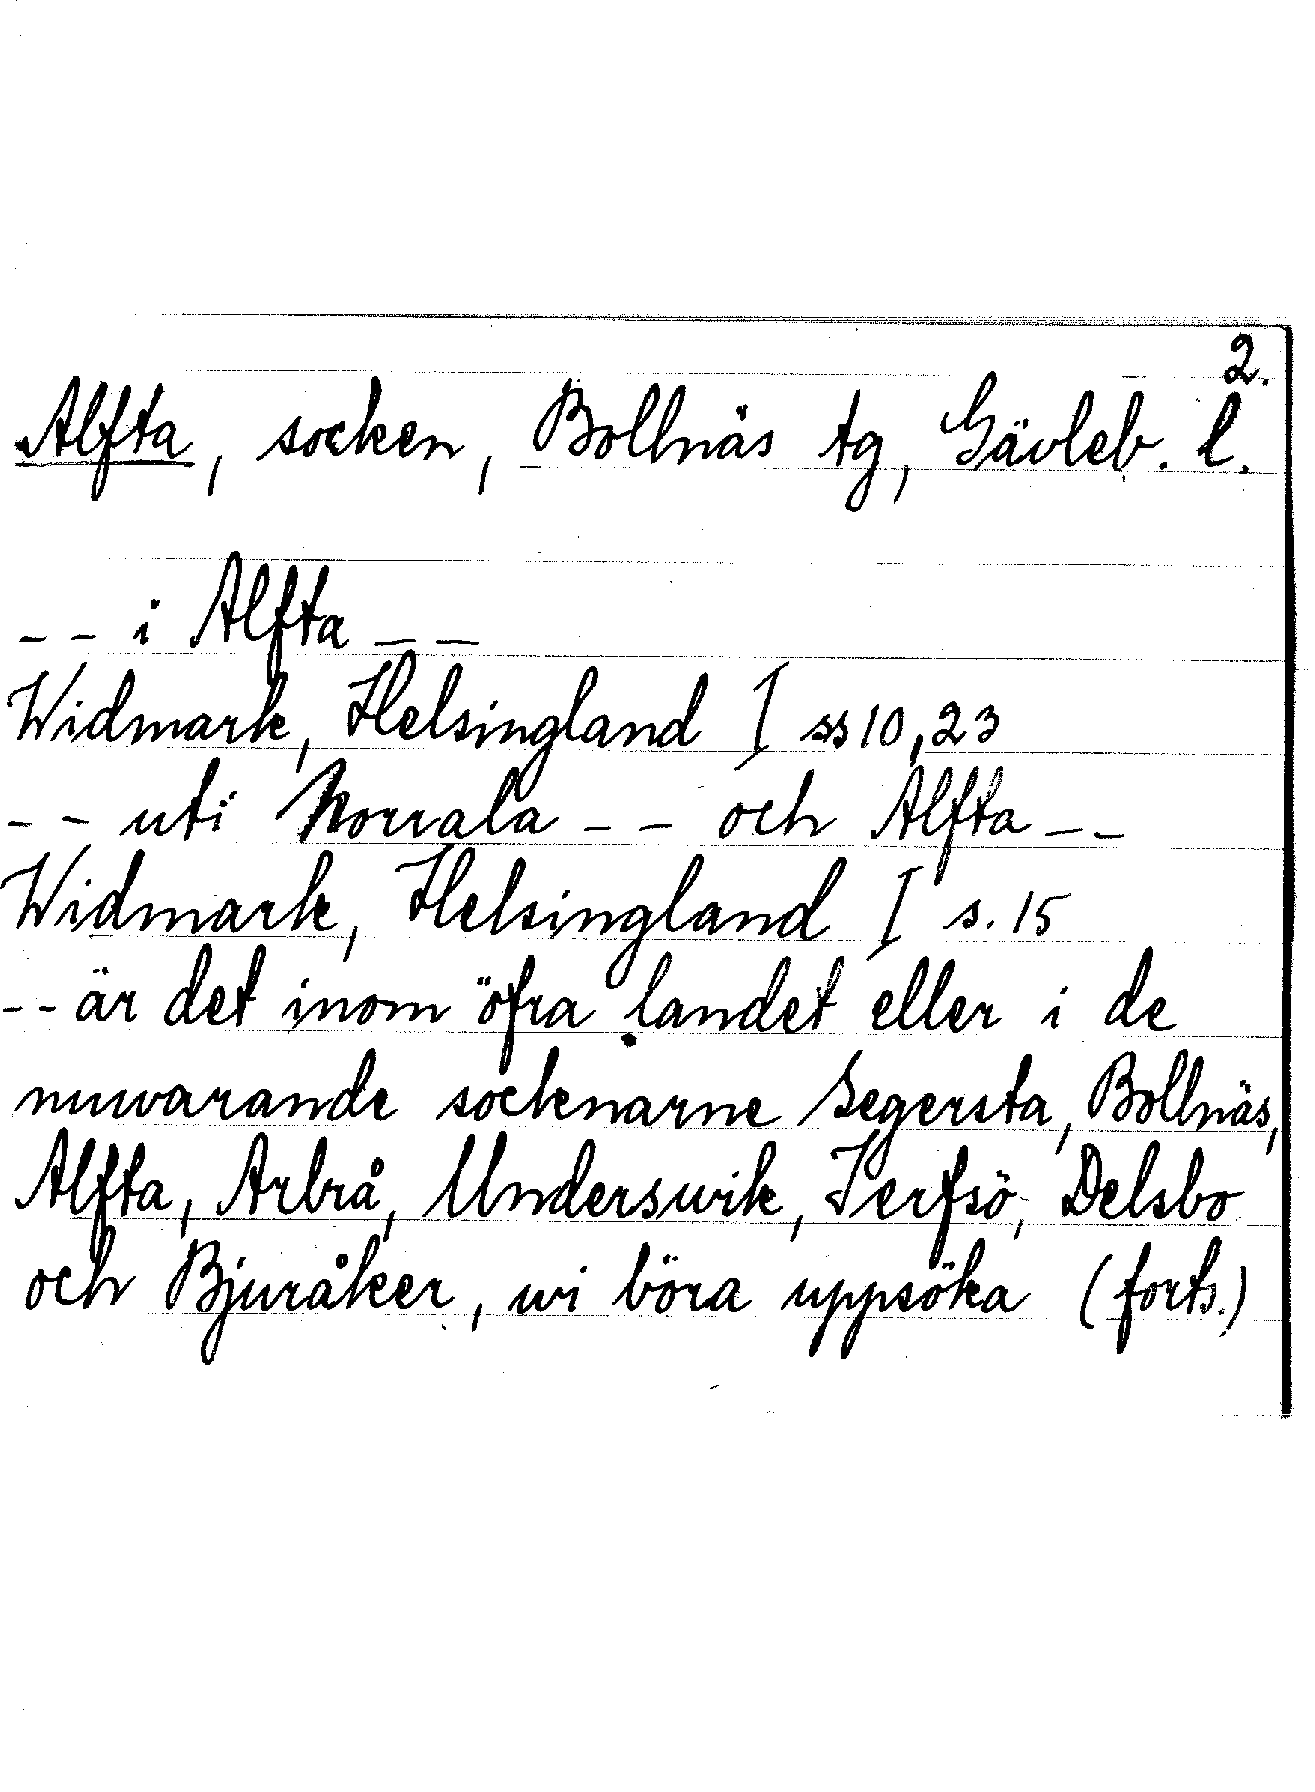 2.
Alfta, socken, Bollnäs tg, Gävleb. l.
-- i Alfta --
Widmark, Helsingland I ss 10, 23
-- uti Norrala -- och Alfta --
Widmark, Helsingland I s. 15
-- är det inom öfra landet eller i de
nuwarande socknarne Segersta, Bollnäs,
Alfta, Arbrå, Underswik, Jerfsö, Delsbo
och Bjuråker, wi böra uppsöka (forts.)